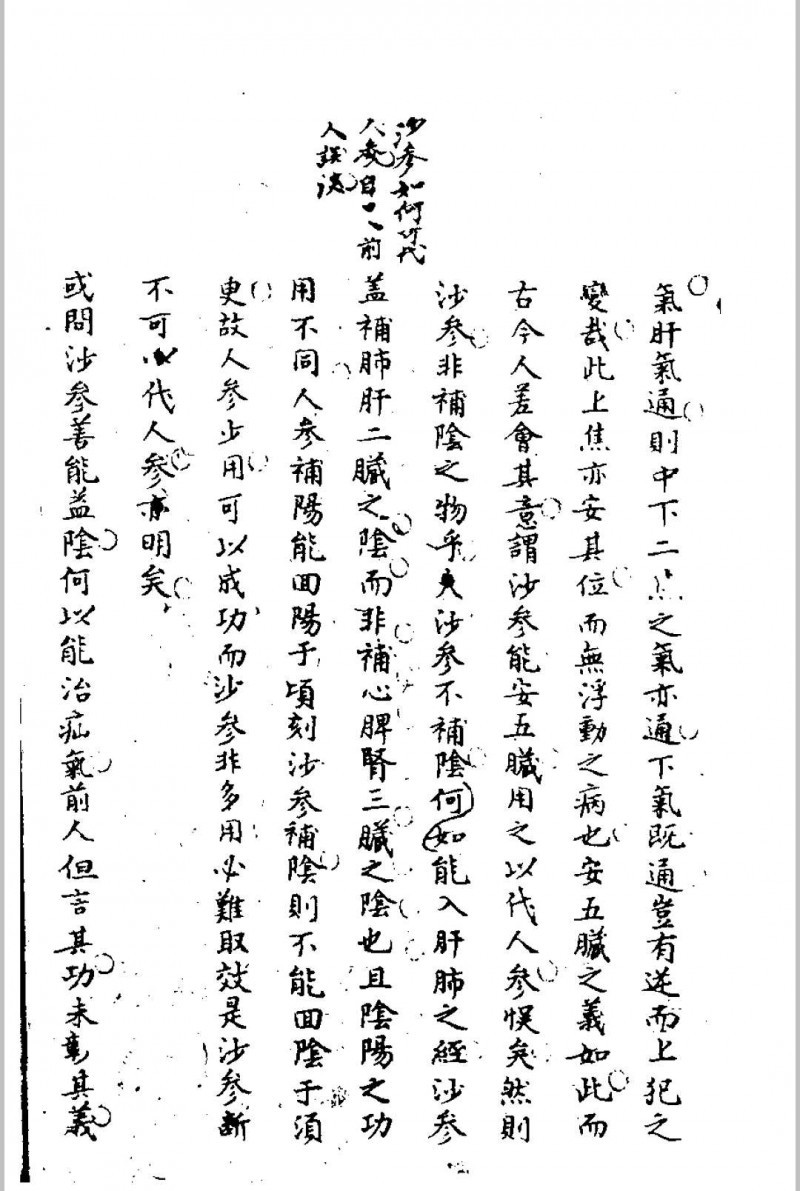 沙參如何可代
人參自丶丶前
人誤決
氣肝氣通則中下二焦之氣亦通下氣既通豈有逆而上犯之
變哉此上焦亦安其位而無浮動之病也安五臟之義如此而
古今人差會其意謂沙參能安五臟用之以代人參悮矣然則
沙參非補陰之物乎夫沙參不補陰何如能入肝肺之經沙參
蓋補肺肝二臟之陰而非補心脾腎三臟之陰也且陰陽之功
用不同人參補陽能回陽于頃刻沙參補陰則不能回陰于須
更故人參少用可以成功而沙參非多用必難取效是沙參斷
不可以代人參亦明矣
或問沙參善能益陰何以能治疝氣前人但言其功未彰其義